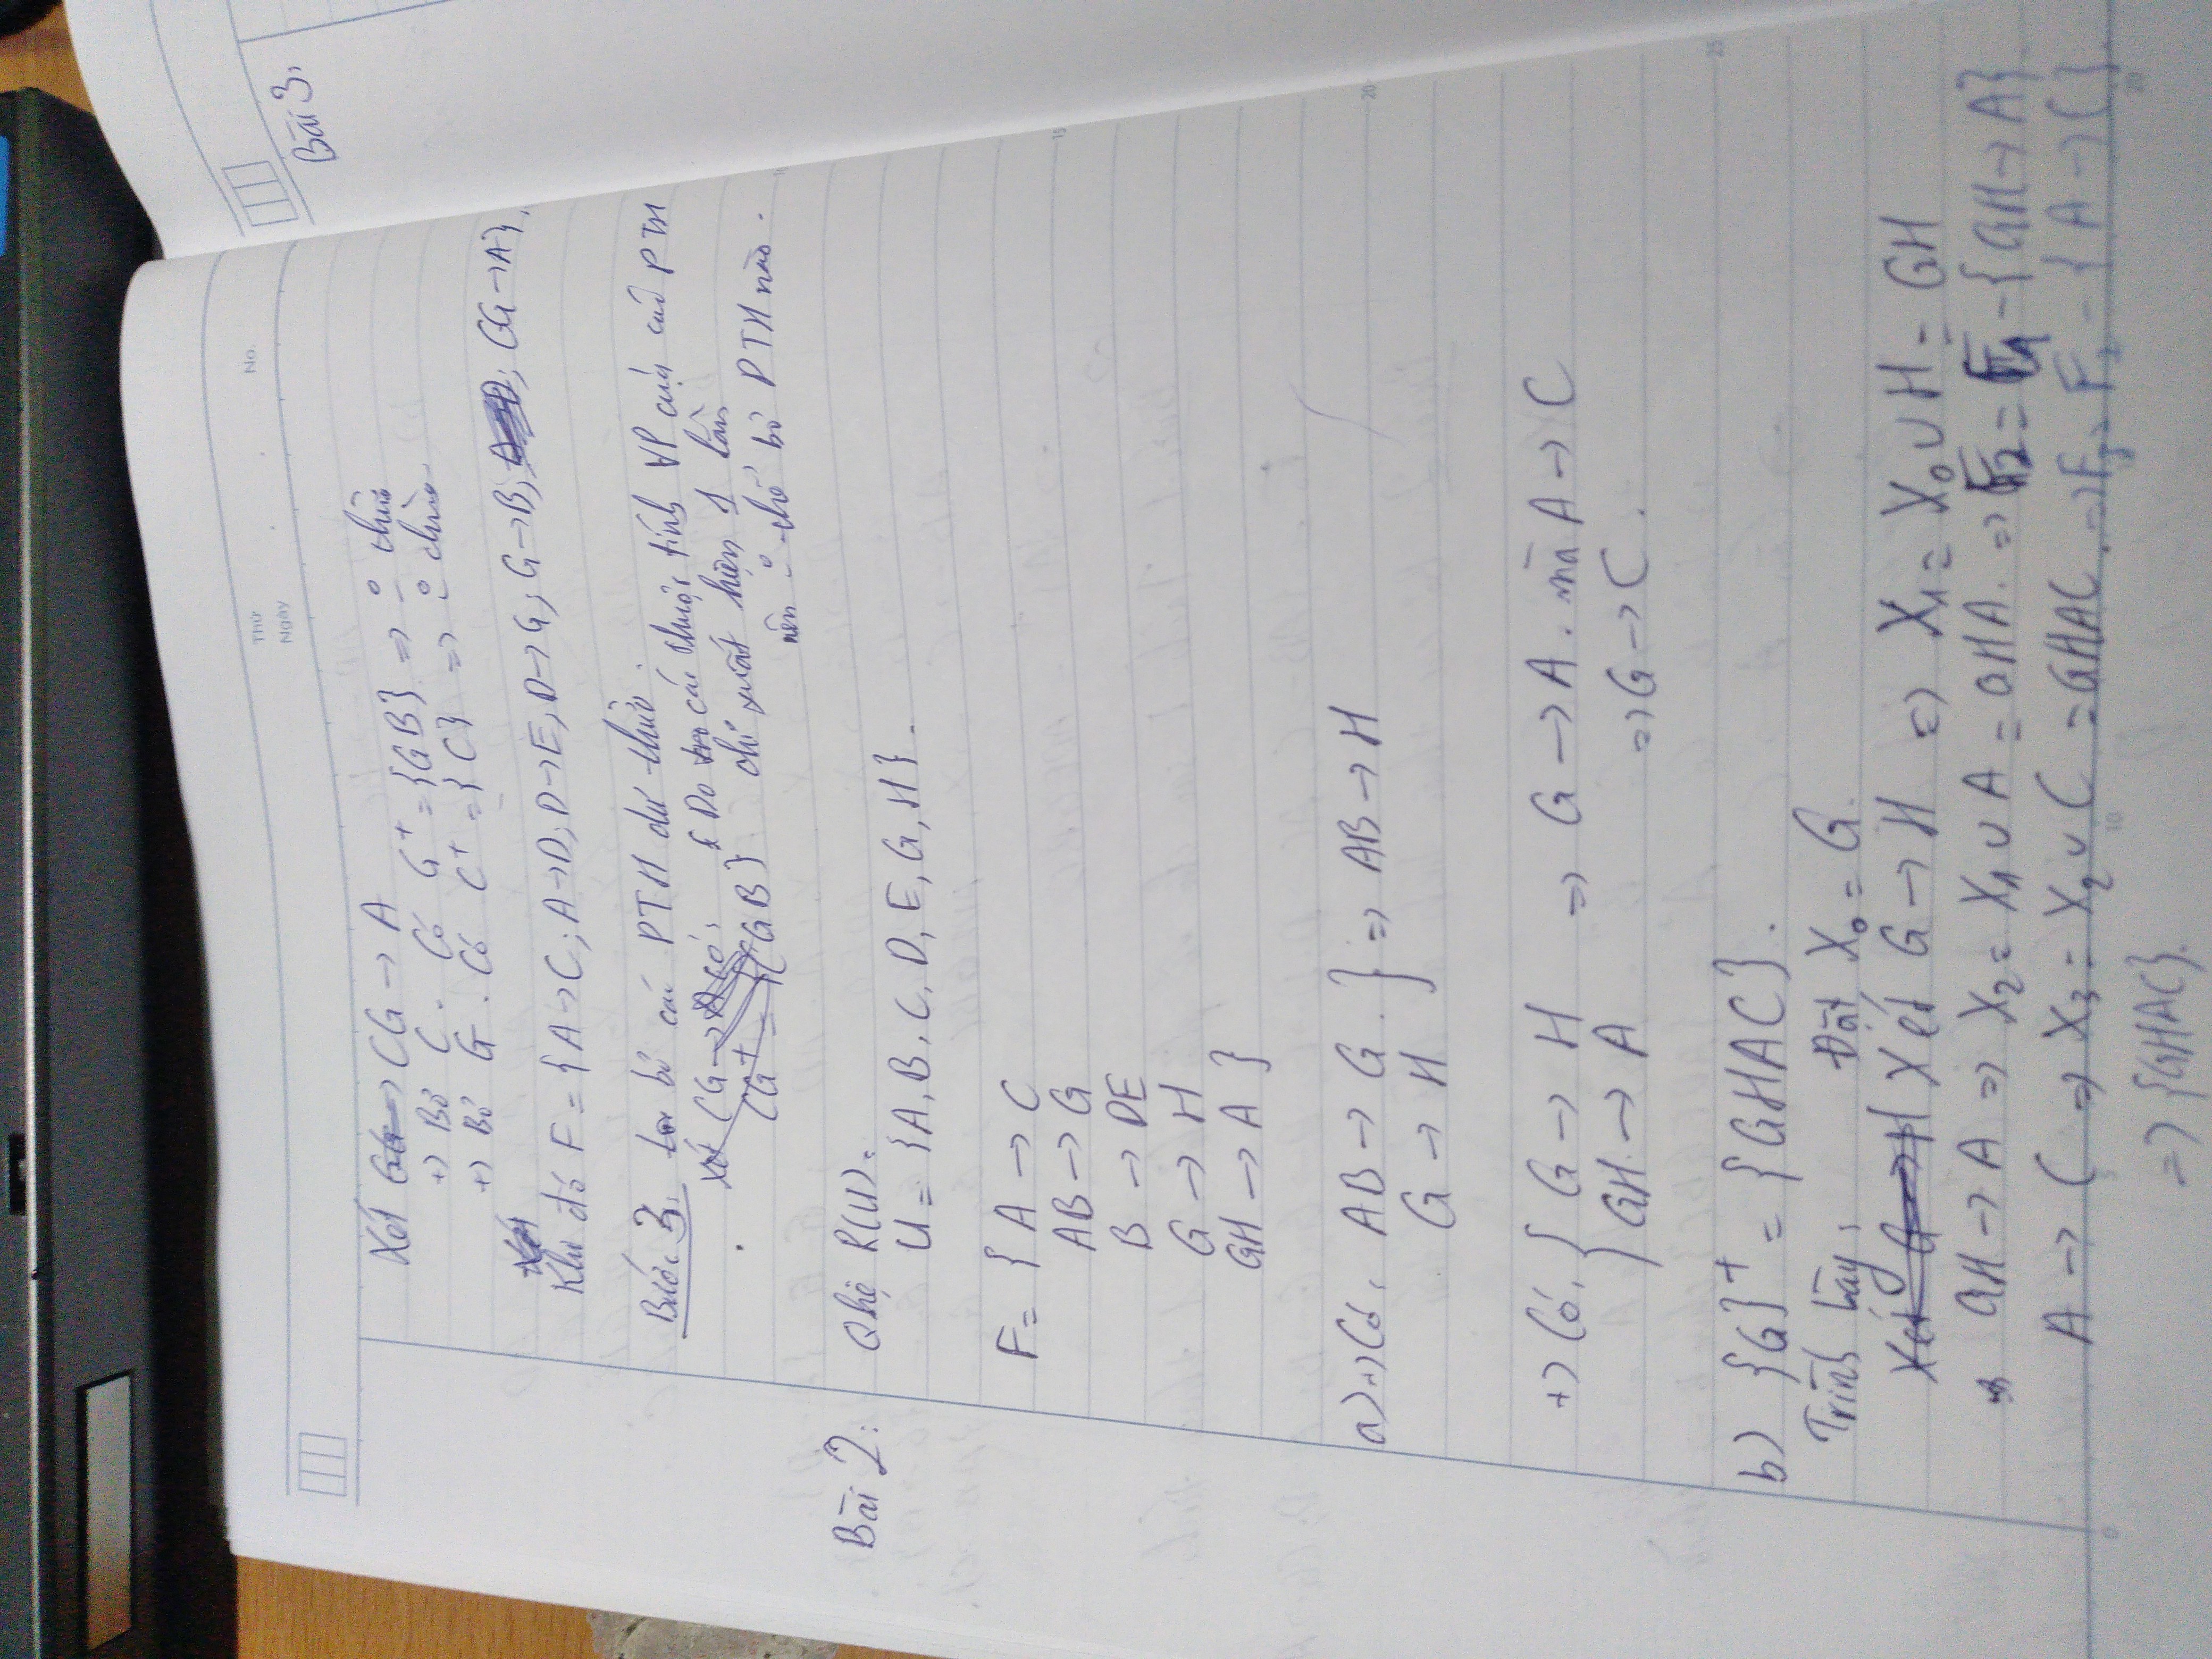 Thứ
Ngày
No.
Bài 3:
Xét CG → A
+) Bỏ C . Có G⁺ = {GB} => thừa
+) Bỏ G . Có C⁺ = {C} => thừa
Khi đó F = {A → C; A → D; D → E, D → G; G → B; CG → A}.
Bước 3: bỏ các PTH dư thừa.
Xét CG → A có: Do các thuộc tính VP của các PTH
CG⁺ = {CGB} chỉ xuất hiện 1 lần
nên thể bỏ PTH nào.
Bài 2: Qhệ R(U).
U = {A, B, C, D, E, G, H}.
F = { A → C
AB → G
B → DE
G → H
GH → A }
a) +) Có: AB → G . } => AB → H
G → H
+) Có: { G → H => G → A . mà A → C
GH → A => G → C .
b) {G}⁺ = {GHAC}.
Trình bày: Đặt X₀ = G.
Xét G → H Xét G → H => X₁ = X₀ ∪ H = GH
GH → A => X₂ = X₁ ∪ A = GHA. => F₂ = F₁ - {GH → A}.
A → C => X₃ = X₂ ∪ C = GHAC. => F₃ = F₂ - {A → C}.
=> {GHAC}.